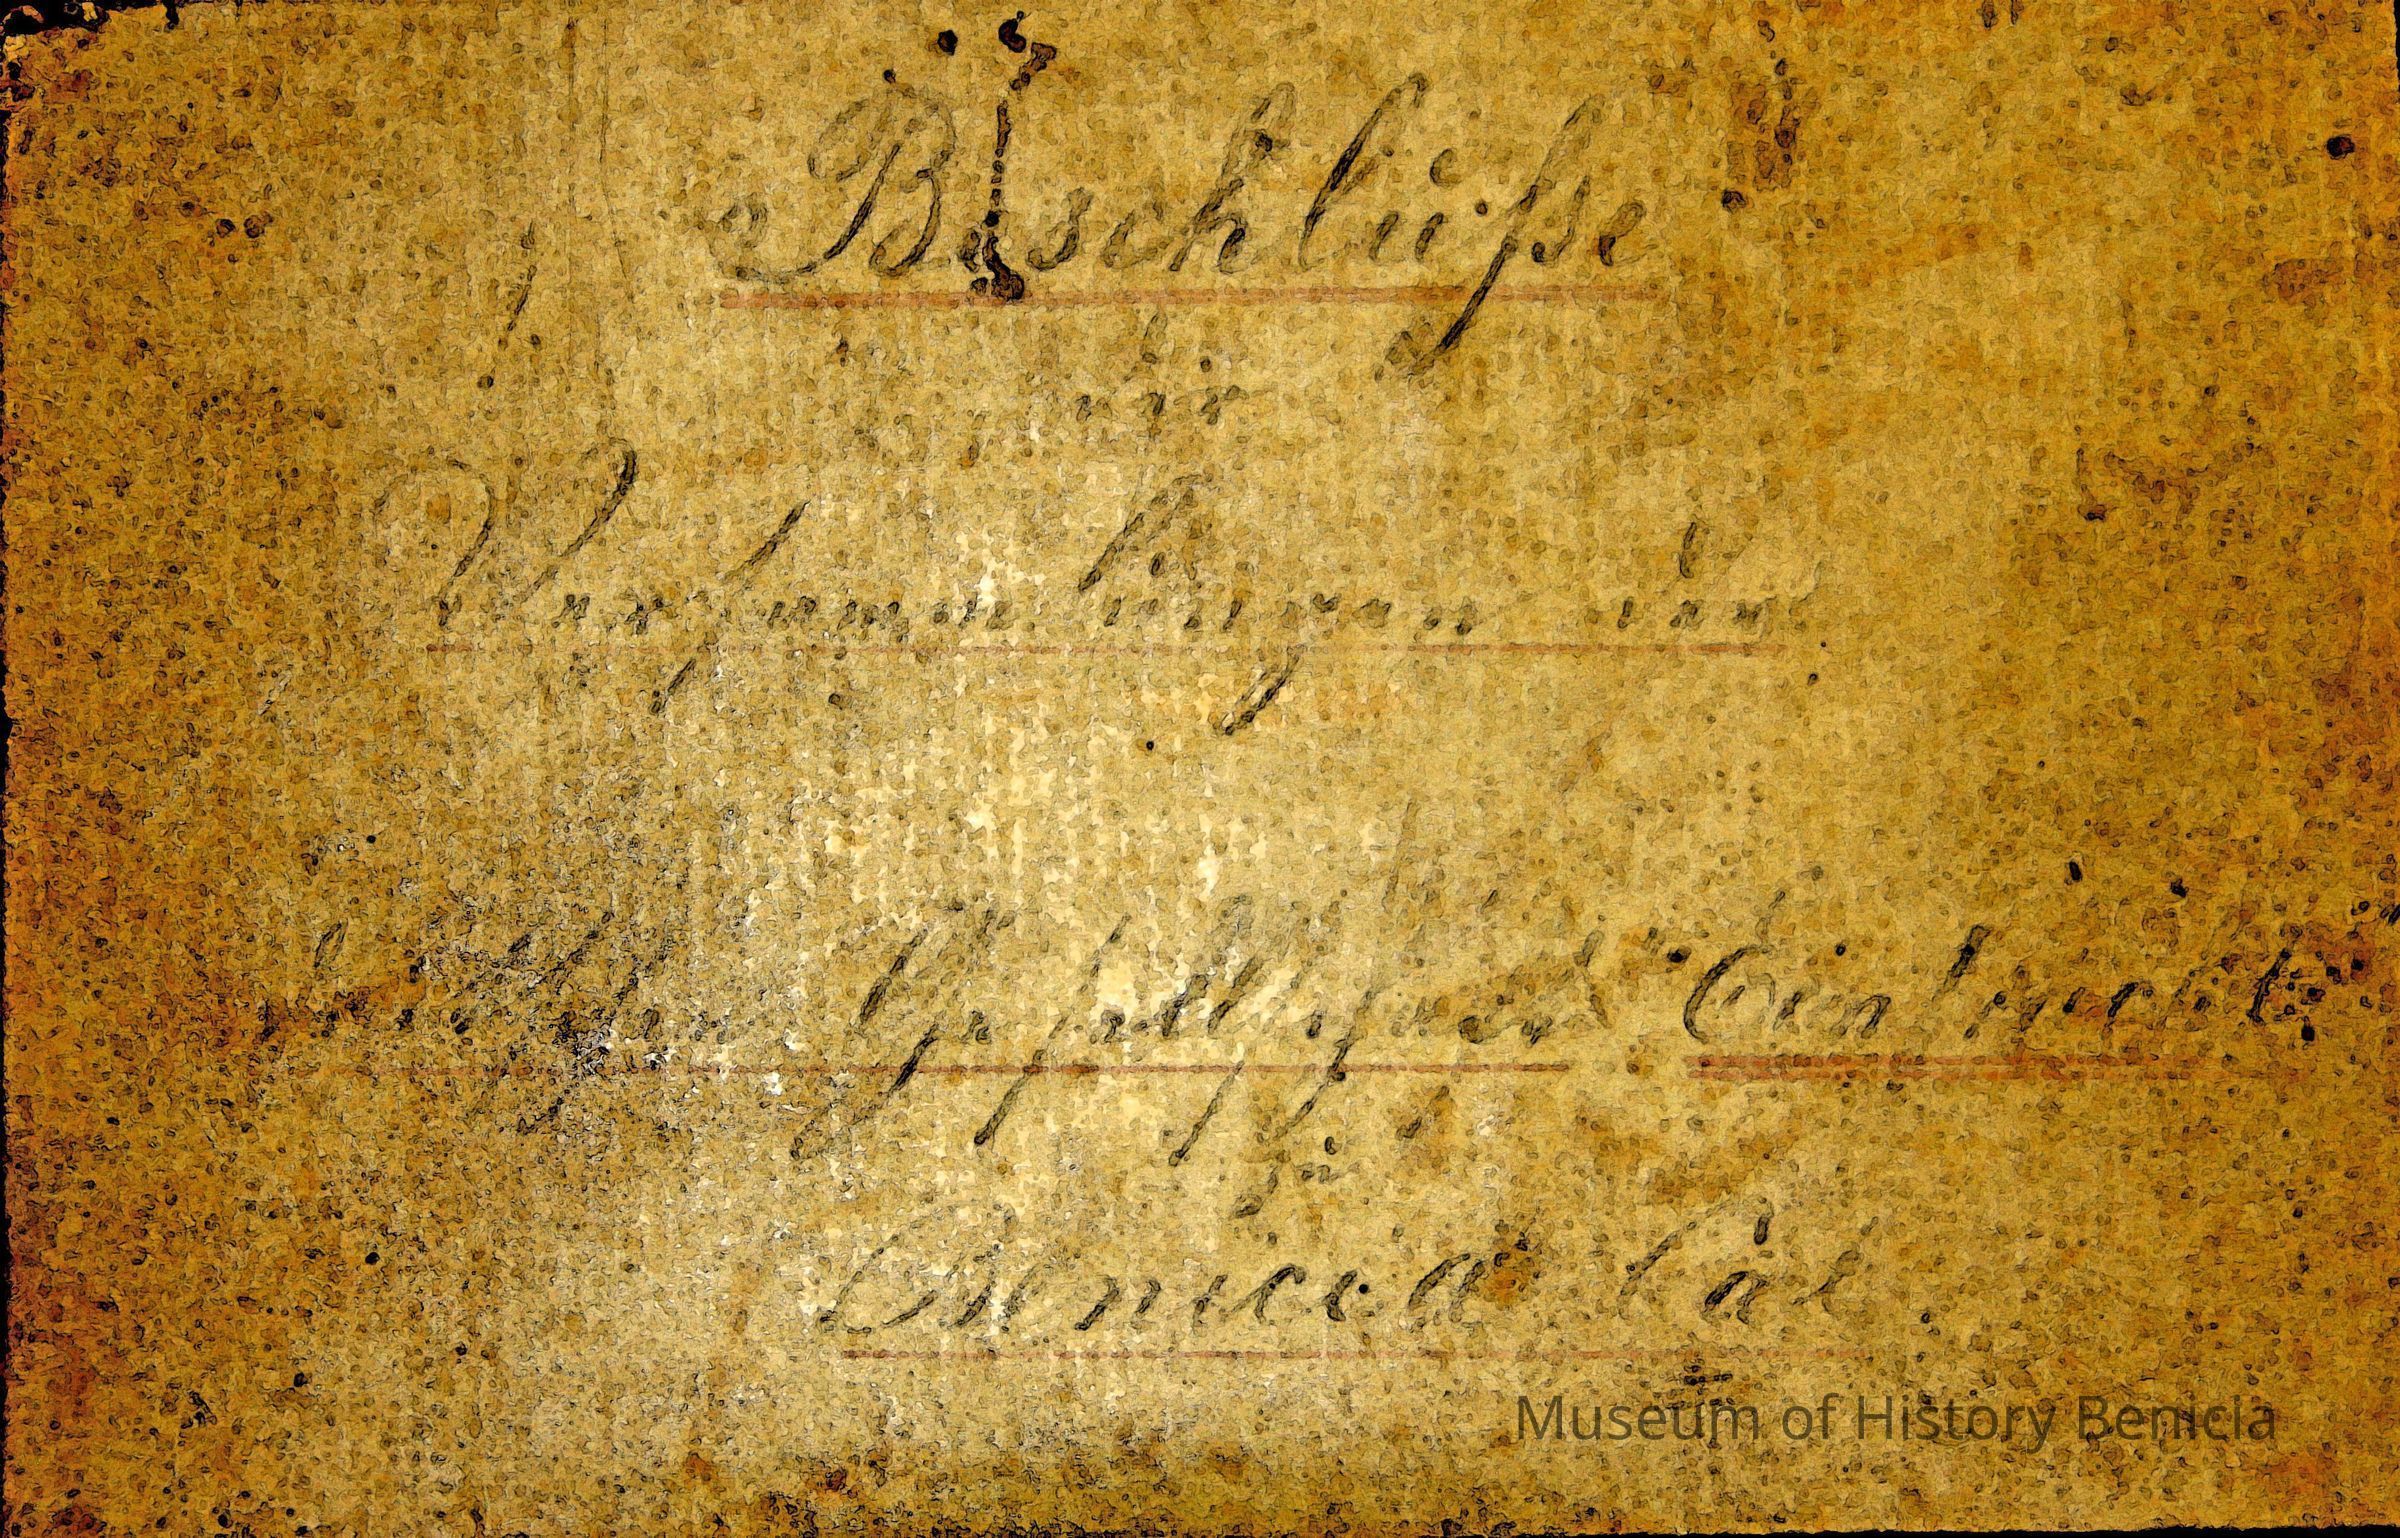 Beschlüße
der
Versammlungen der
Gesellschaft Eintracht
zu
Benicia Cal.
Museum of History Benicia